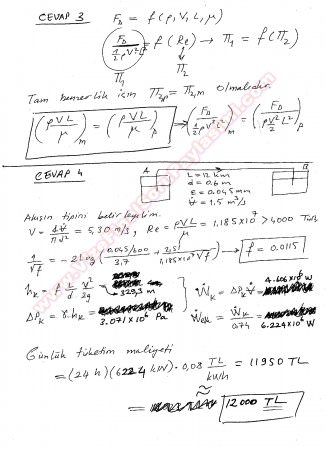 CEVAP 3 F_D = f(ρ, V, L, μ)
F_D / (½ρV²L²) = f(Re) → Π₁ = f(Π₂)
Π₁ Π₂
Tam benzerlik için Π₂p = Π₂m olmalıdır.
(ρVL/μ)m = (ρVL/μ)p → (F_D / ½ρV²L²)m = (F_D / ρV²/2 L²)p
CEVAP 4
L = 12 km
d = 0,6 m
ε = 0.045 mm
V̇ = 1.5 m³/s
Akışın tipini belirleyelim.
V = 4V̇/πd² = 5,30 m/s, Re = ρVL/μ = 1.185x10⁷ > 4000 Türb.
1/√f = -2 Log (0.045/600 / 3.7 + 2.51 / 1.185x10⁷√f) → f = 0.0115
h_K = f L/d V²/2g = 329,3 m
Ẇ_K = ΔP_K V̇ = 4.606x10⁶ W
ΔP_K = γ.h_K = 3.071x10⁶ Pa
Ẇ_eK = Ẇ_K / 0.74 = 6.224x10⁶ W
Günlük tüketim maliyeti
= (24 h)(6224 kW) · 0,08 TL/kWh = 11950 TL
≈ 12000 TL